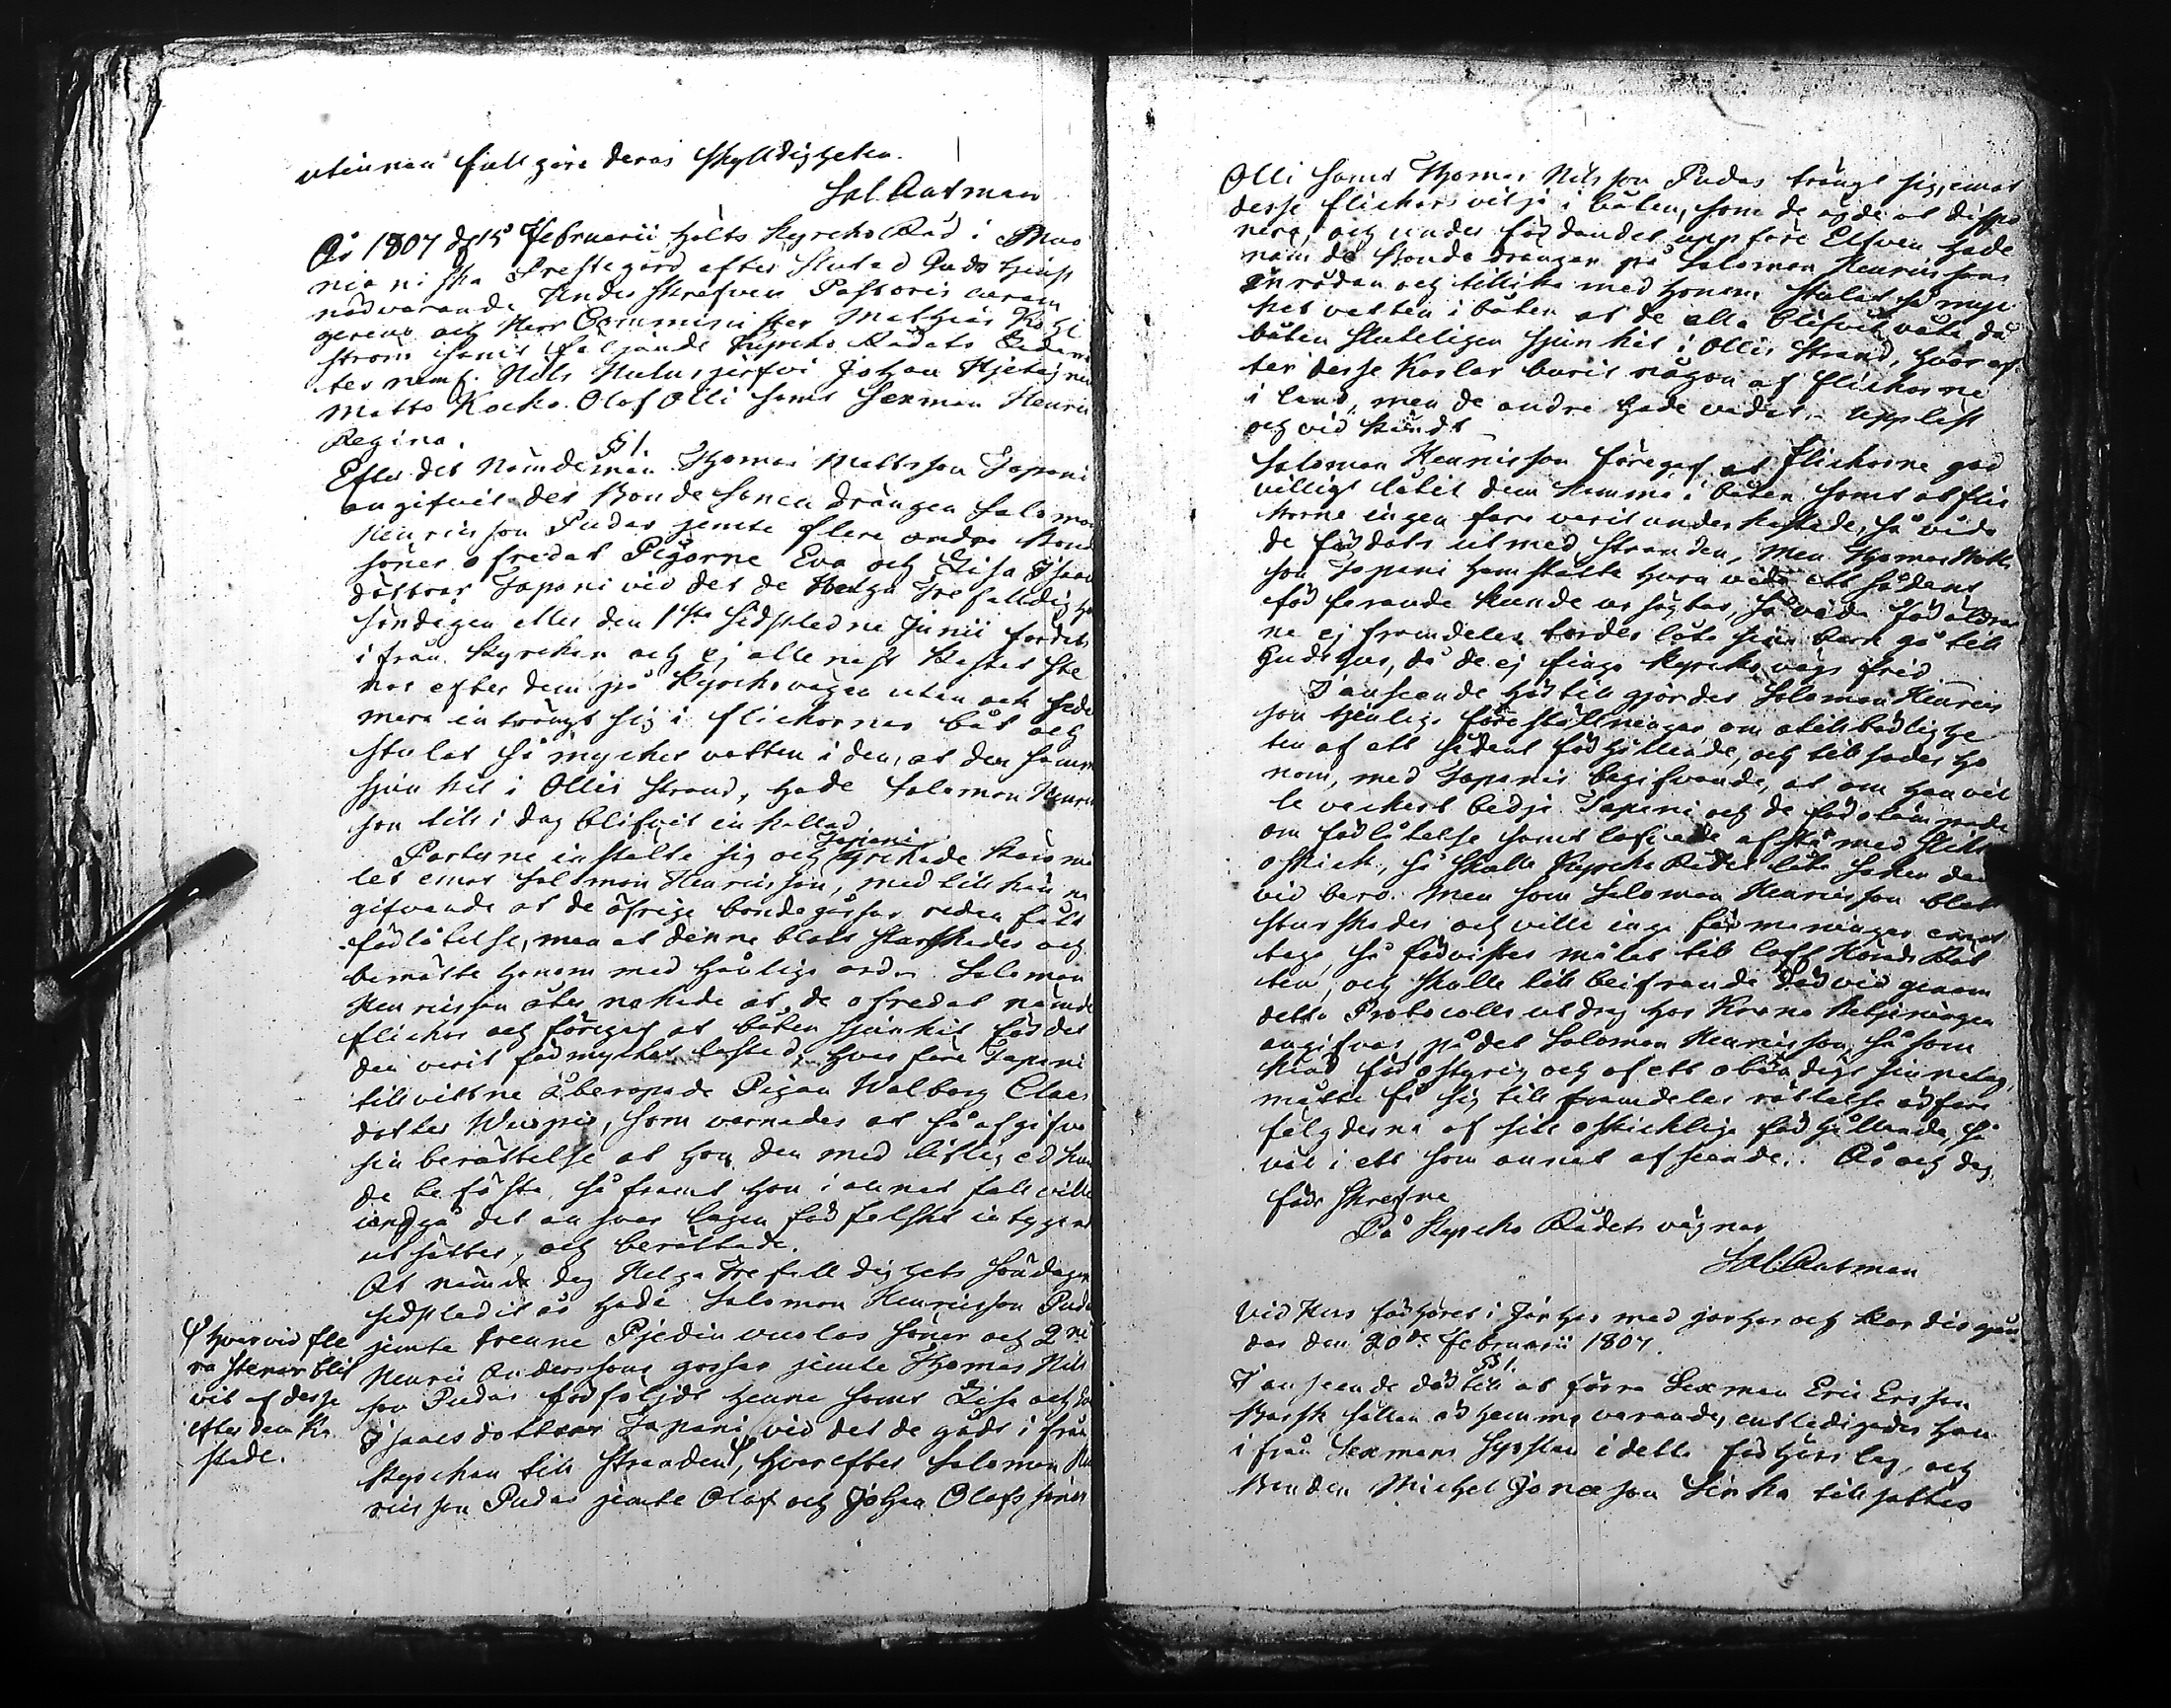 utinnan fullgöra deras skylldigheter.
Sal. Antman
År 1807 d. 15 Februarii hölts Kyrcko Råd i Muo
nioniska Prestegård efter slutad Guds tjenst
närvarande Underskrefven Pastoris vicem
gerens och Herr Comminister Mathias Kohl
ström samt följande Kyrcko Rådets Ledamö
ter nemt. Nils Mulusjerfvi Johan Hjetajerv
Matts Kocko. Olof Olli samt Sexman Henric
Regina.
§ 1.
Efter det Nämdeman Thomas Mattsson Tapani
angifvit det Bonde Sonen drängen Salomon
Henricsson Pudas jemte flere andra Bonde
söner ofredat Pigorne Eva och Lisa Isaacs
döttrar Tapani vid det de Helga Trefalldighets
söndagen eller den 1sta sidstledne Junii fordets
ifrån Kyrckan och ej allenast kastat ste
nar efter dem på Kyrckovägen utan ock seder
mera inträngt sig i flickornas båt och
stulat så mycket vatten i den, at den samma
sjunkit i Ollis strand, hade Salomon Henrics
son till i dag blifvit inkallad
Parterne instälte sig och Tapani yrckade Käromå
let emot Salomon Henricsson, med tillkänna
gifvande at de öfrige bondegossar redan fådt
förlåtelse, men at denne blott sturskades och
bemötte honom med hånliga ord. Salomon
Henricsson åter nekade at de ofredat nämde
flickor och föregaf at båten sjunkit för det
den varit för mycket lastad, hvarföre Tapani
till vittne åberopade Pigan Walborg Claes
dotter Wuopio, som varnades at så afgifva
sin berättelse at hon den med liflig ed kun
de befästa, så framt hon i annat fall ville
undgå det ansvar lagen för falskt intygande
utsätter, och berättade.
At nämde dag Helga Trefalldighets söndagen
sidstledit år hade Salomon Henricsson Pudas
jemte trenne Pjedin vuolas söner och 2ne
Henric Anderssons gossar jemte Thomas Nils
son Pudas förföljdt henne samt Lisa och Eva
Isaacsdöttrar Tapani vid det de gådt ifrån
Kyrckan till stranden, hvarefter Salomon Hen
ricsson Pudas jemte Olof och Johan Olofs söner
hvarvid fle
ra stenar blif
vit af desse
efter dem ka
stade.
Olli samt Thomas Nilsson Pudas trängt sig, emot
desse flickors vilja i båten, som de ägde at dispo
nera, och under fördandet uppföre Elfven hade
nämde Bonde drängar på Salomon Henricssons
inrådan och tillika med honom stulat så myc
ket vatten i båten at de alla blifvit våta, då
båten sluteligen sjunkit i Ollis strand, hvaref
ter desse Karlar burit någon af flickorne
i land, men de andre hade vadat. Upplest
och vidkändt
Salomon Henricsson föregaf at flickorne god
villigt låtit dem komma i båten samt at flic
korne ingen fara varit underkastade, så vida
de färdats utmed stranden, men Thomas Matts
son Tapani hemstälte huru vida ett sådant
förfarande kunde ursägtas, så vida Föräldrar
ne ej framdeles tordes låta sina barn gå till
Guds hus, då de ej finge Kyrcko vägs frid
I anseende härtill gjordes Salomon Henrics
son tjenliga föreställningar om otillbörlighe
ten af ett sådant förhållande, och tillsades ho
nom, med Tapanis begifvande, at om han vil
le vackert bedja Tapani och de förolämpade
om förlåtelse samt lofvade afstå med slikt
oskick, så skulle Kyrcko Rådet låta saken der
vid bero. Men som Salomon Henricsson blott
sturskades och ville inga förmaningar emot
taga, så förvistes målet till lofl. Härads Rät
ten, och skulle till beifrande dervid genom
detta Protocolls utdrag hos Krono Betjeningen
angifvas, på det Salomon Henricsson, så som
känd för ostyrig och af ett obändigt sinnelag,
måtte få sig till framdeles rättelse erfara
följderna af sitt oskickliga förhållande, så
väl i ett som annat afseende. År och dag
förr skrefne
På Kyrcko Rådets vägnar
Sal. Antman
Vid Husförhöret i Jarhois med jarhois och Kardis grän
dar den 20de Februarii 1807.
§ 1.
I anseende dertill at förra Sexman Eric Ersson
Barsk sällan är hemma varande, entledigades han
ifrån Sexmans Sysslan i detta förhörslag, och
Bonden Michel Jonæson Sirka tillsattes